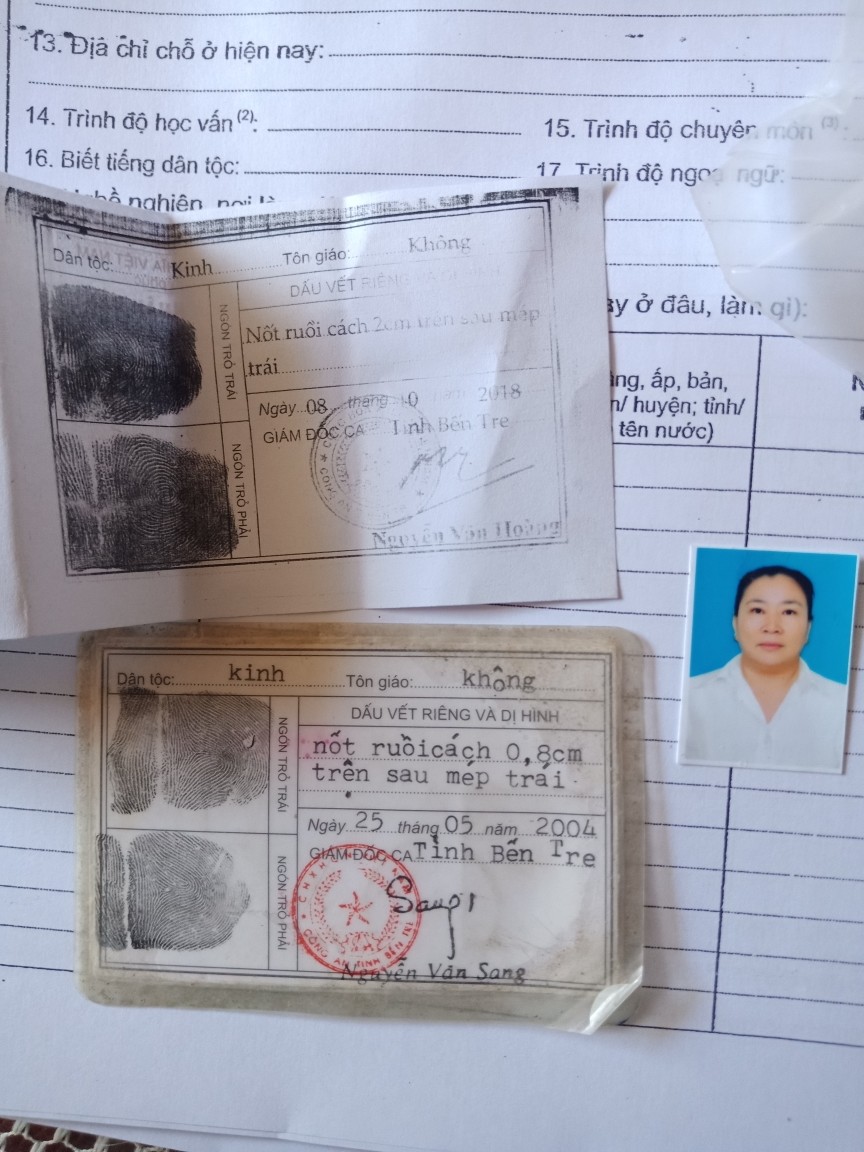 13. Địa chỉ chỗ ở hiện nay:
14. Trình độ học vấn (2):
15. Trình độ chuyên môn (3):
16. Biết tiếng dân tộc:
17. Trình độ ngoại ngữ:
Dân tộc: Kinh Tôn giáo: Không
DẤU VẾT RIÊNG VÀ DỊ HÌNH
NGÓN TRỎ TRÁI
Nốt ruồi cách 2cm trên sau mép
trái
Ngày 08 tháng 10 năm 2018
GIÁM ĐỐC CA Tỉnh Bến Tre
NGÓN TRỎ PHẢI
Nguyễn Văn Hoàng
ở đâu, làm gì):
ấp, bản,
huyện; tỉnh/
tên nước)
Dân tộc: kinh Tôn giáo: không
DẤU VẾT RIÊNG VÀ DỊ HÌNH
NGÓN TRỎ TRÁI
nốt ruồicách 0,8cm
trên sau mép trái
Ngày 25 tháng 05 năm 2004
GIÁM ĐỐC CA Tỉnh Bến Tre
NGÓN TRỎ PHẢI
Sang
CÔNG AN TỈNH BẾN TRE
Nguyễn Văn Sang